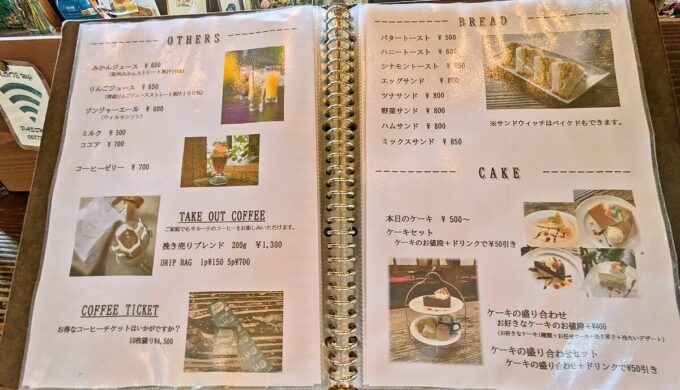 OTHERS
みかんジュース ¥ 650
りんごジュース ¥ 650
ジンジャーエール ¥ 600
(ウィルキンソン)
ミルク ¥ 500
ココア ¥ 700
コーヒーゼリー ¥ 700
TAKE OUT COFFEE
ご家庭でもサルーテのコーヒーをお楽しみいただけます。
挽き売りブレンド 200g ¥1,300
DRIP BAG 1p¥150 5p¥700
COFFEE TICKET
お得なコーヒーチケットはいかがですか?
10枚綴り¥4,500
BREAD
バタートースト ¥ 500
ハニートースト ¥ 600
シナモントースト ¥ 650
エッグサンド ¥ 800
ツナサンド ¥ 800
野菜サンド ¥ 800
ハムサンド ¥ 800
ミックスサンド ¥ 850
※サンドウィッチはベイクドもできます。
CAKE
本日のケーキ ¥ 500~
ケーキセット
ケーキのお値段+ドリンクで¥50引き
ケーキの盛り合わせ
お好きなケーキのお値段+¥400
(お好きなケーキ1種類+お任せケーキ+焼き菓子+冷たいデザート)
ケーキの盛り合わせセット
ケーキの盛り合わせ+ドリンクで¥50引き